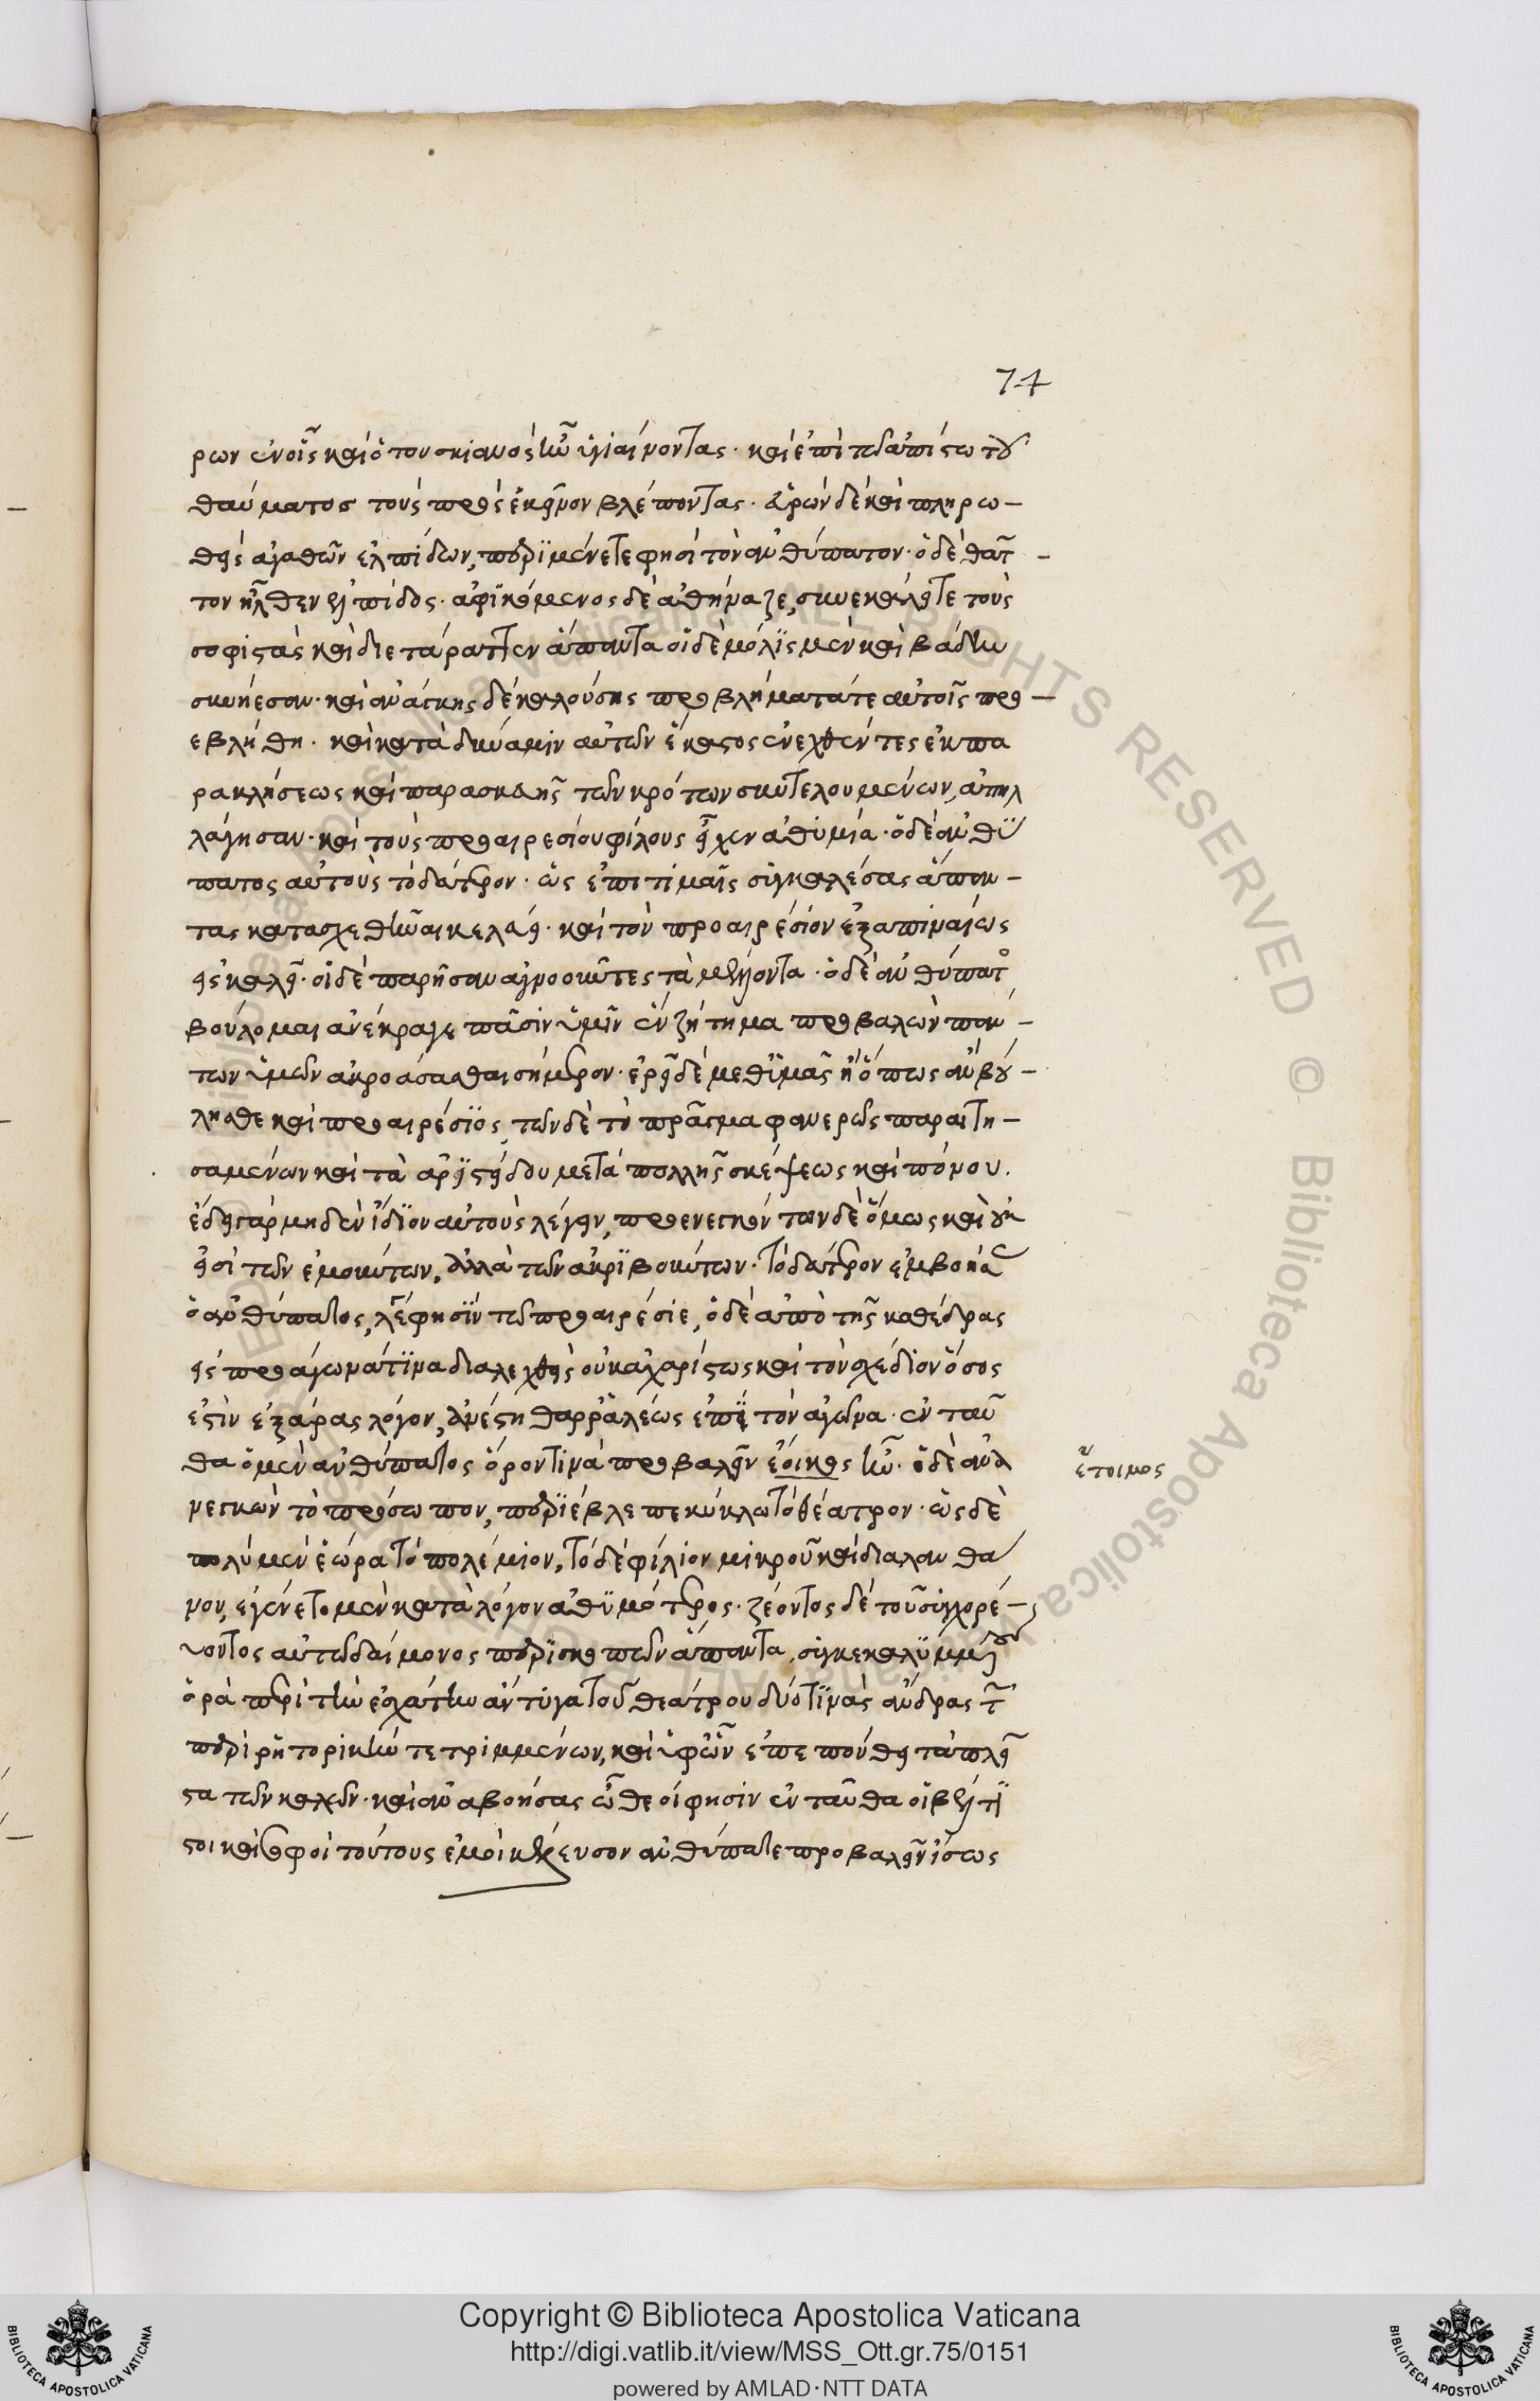 74
ρων ἐν οἷς καὶ ὁ τουσκιανὸς ἦν ὑγιαίνοντας· καὶ ἐπὶ τῷ ἀπίστῳ τοῦ
θαύματος τοὺς πρὸς ἐκεῖνον βλέποντας. αἱρῶν δὲ καὶ πληρω-
θεὶς ἀγαθῶν ἐλπίδων, περιμένετε φησὶ τὸν ἀνθύπατον· ὁ δὲ θᾶτ-
τον ἦλθεν ἐλπίδος· ἀφικόμενος δὲ ἀθήναζε, συνεκάλει τε τοὺς
σοφιστὰς καὶ διετάραττεν ἅπαντα οἱ δὲ μόλις μὲν καὶ βάδην
συνήεσαν· καὶ ἀνάγκης δὲ καλούσης προβλήματά τε αὐτοῖς προ-
εβλήθη· καὶ κατὰ δύναμιν αὐτῶν ἕκαστος ἐνεχθέντες ἐκ πα
ρακλήσεως καὶ παρασκευῆς τῶν κρότων συντελουμένων, ἀπηλ
λάγησαν· καὶ τοὺς προαιρεσίου φίλους εἶχεν ἀθυμία· ὁ δὲ ἀνθύ
πατος αὐτοὺς τὸ δεύτερον· ὡς ἐπὶ τιμαῖς συγκαλέσας ἅπαν-
τας κατασχεθῆναι κελεύει· καὶ τὸν προαιρέσιον ἐξαπιναίως
εἰσκαλεῖ· οἱ δὲ παρῆσαν ἀγνοοῦντες τὰ μέλλοντα· ὁ δὲ ἀνθύπατος
βούλομαι ἀνέκραγε πᾶσιν ὑμῖν ἓν ζήτημα προβαλὼν πάν-
των ὑμῶν ἀκροάσασθαι σήμερον· ἐρεῖ δὲ μεθ' ὑμᾶς ἢ ὅπως ἂν βού-
λησθε καὶ προαιρέσιος, τῶν δὲ τὸ πρᾶγμα φανερῶς παραιτη-
σαμένων καὶ τὰ ἀριστείδου μετὰ πολλῆς σκέψεως καὶ πόνου.
ἔδει γὰρ μηδὲν ἴδιον αὐτοὺς λέγειν, προενεγκόντων δὲ ὅμως καὶ οὐκ
εἰσὶ τῶν ἐμούντων, ἀλλὰ τῶν ἀκριβούντων· τὸ δεύτερον ἐμβοήσας
ὁ ἀνθύπατος, λέγε φησὶν τῷ προαιρέσιε, ὁ δὲ ἀπὸ τῆς καθέδρας
εἰς προάγωνά τινα διαλεχθεὶς οὐκ ἀχαρίστως καὶ τὸν σχέδιον ὅσος
ἐστὶν ἐξάρας λόγον, ἀνέστη θαρραλέως ἐπὶ τὸν ἀγῶνα· ἐνταῦ
θα ὁ μὲν ἀνθύπατος ὅρον τινὰ προβαλεῖν ἐοικὼς ἦν· ὁ δὲ ἀνα
νεγκὼν τὸ πρόσωπον, περιέβλεπε κύκλῳ τὸ θέατρον· ὡς δὲ
πολὺ μὲν ἑώρα τὸ πολέμιον, τὸ δὲ φίλιον μικροῦ καὶ διαλανθά
νον, ἐγένετο μὲν κατὰ λόγον ἀθυμότερος· ζέοντος δὲ τοῦ συγχορε-
ύοντος αὐτῷ δαίμονος περισκοπῶν ἅπαντα, συγκεκαλυμμένους
ὁρᾷ περὶ τὴν ἐσχάτην ἄντυγα τοῦ θεάτρου δύο τινὰς ἄνδρας τῶν
περὶ ῥητορικὴν τετριμμένων, καὶ ὑφ' ὧν ἐπεπόνθει τὰ πλεῖ
στα τῶν κακῶν· καὶ ἀναβοήσας ὦ θεοί φησιν ἐνταῦθα οἱ βέλτι
στοι καὶ σοφοὶ τούτους ἐμοὶ κέλευσον ἀνθύπατε προβαλεῖν ἴσως
ἕτοιμος
Copyright © Biblioteca Apostolica Vaticana
http://digi.vatlib.it/view/MSS_Ott.gr.75/0151
powered by AMLAD·NTT DATA